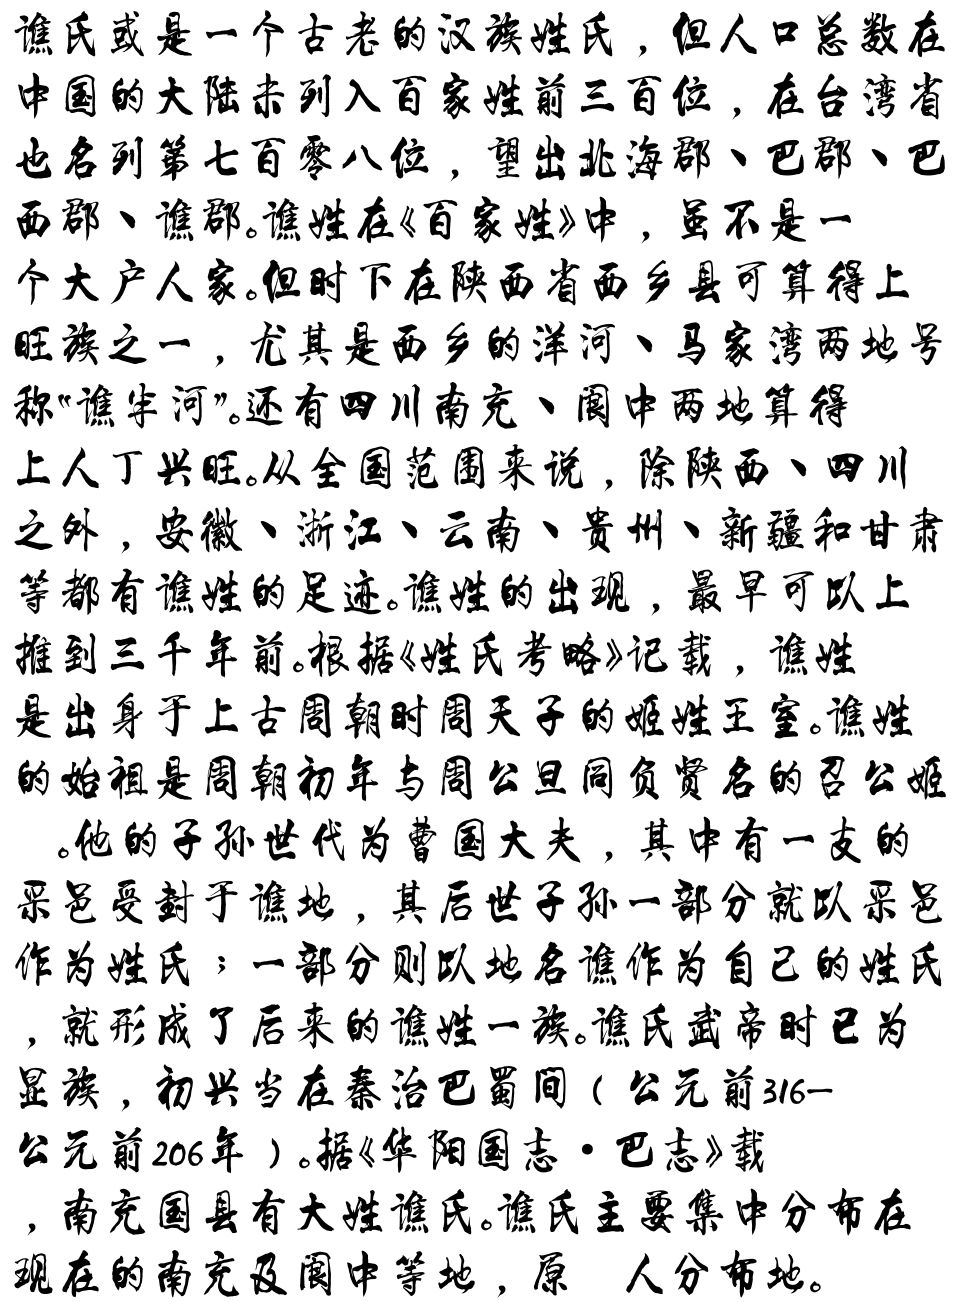 谯氏或是一个古老的汉族姓氏，但人口总数在
中国的大陆未列入百家姓前三百位，在台湾省
也名列第七百零八位，望出北海郡、巴郡、巴
西郡、谯郡。谯姓在《百家姓》中，虽不是一
个大户人家。但时下在陕西省西乡县可算得上
旺族之一，尤其是西乡的洋河、马家湾两地号
称“谯半河”。还有四川南充、阆中两地算得
上人丁兴旺。从全国范围来说，除陕西、四川
之外，安徽、浙江、云南、贵州、新疆和甘肃
等都有谯姓的足迹。谯姓的出现，最早可以上
推到三千年前。根据《姓氏考略》记载，谯姓
是出身于上古周朝时周天子的姬姓王室。谯姓
的始祖是周朝初年与周公旦同负贤名的召公姬
。他的子孙世代为曹国大夫，其中有一支的
采邑受封于谯地，其后世子孙一部分就以采邑
作为姓氏；一部分则以地名谯作为自己的姓氏
，就形成了后来的谯姓一族。谯氏武帝时已为
显族，初兴当在秦治巴蜀间（公元前316—
公元前206年）。据《华阳国志·巴志》载
，南充国县有大姓谯氏。谯氏主要集中分布在
现在的南充及阆中等地，原 人分布地。